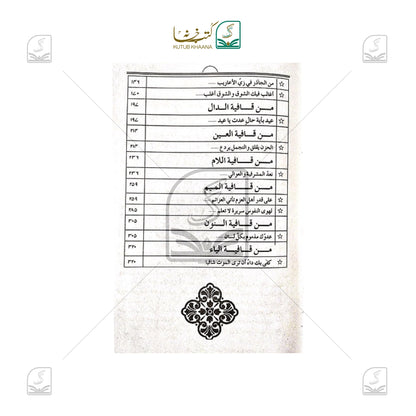 کتب خانہ
KUTUB KHAANA
☆ من الجآذر في زيّ الأعاريب ..... ١٣٦
☆ أغالب فيك الشوق والشوق أغلب ..... ١٧٠
من قافية الدال ١٩٧
☆ عيد بأية حال عدت يا عيد ..... ١٩٧
من قافية العين ٢١٣
☆ الحزن يقلق والتجمل يردع ..... ٢١٣
من قافية اللام ٢٣٦
☆ نعدّ المشرفية والعوالي ..... ٢٣٦
من قافية الميم ٢٥٩
☆ على قدر أهل العزم تأتي العزائم ..... ٢٥٩
☆ لهوى النفوس سريرة لا تعلم ..... ٢٨٥
من قافية النون ٣٠٥
☆ عدوّك مذموم بكلّ لسان ..... ٣٠٥
من قافية الياء ٣٢٠
☆ كفى بك داءً أن ترى الموت شافيا ٣٢٠